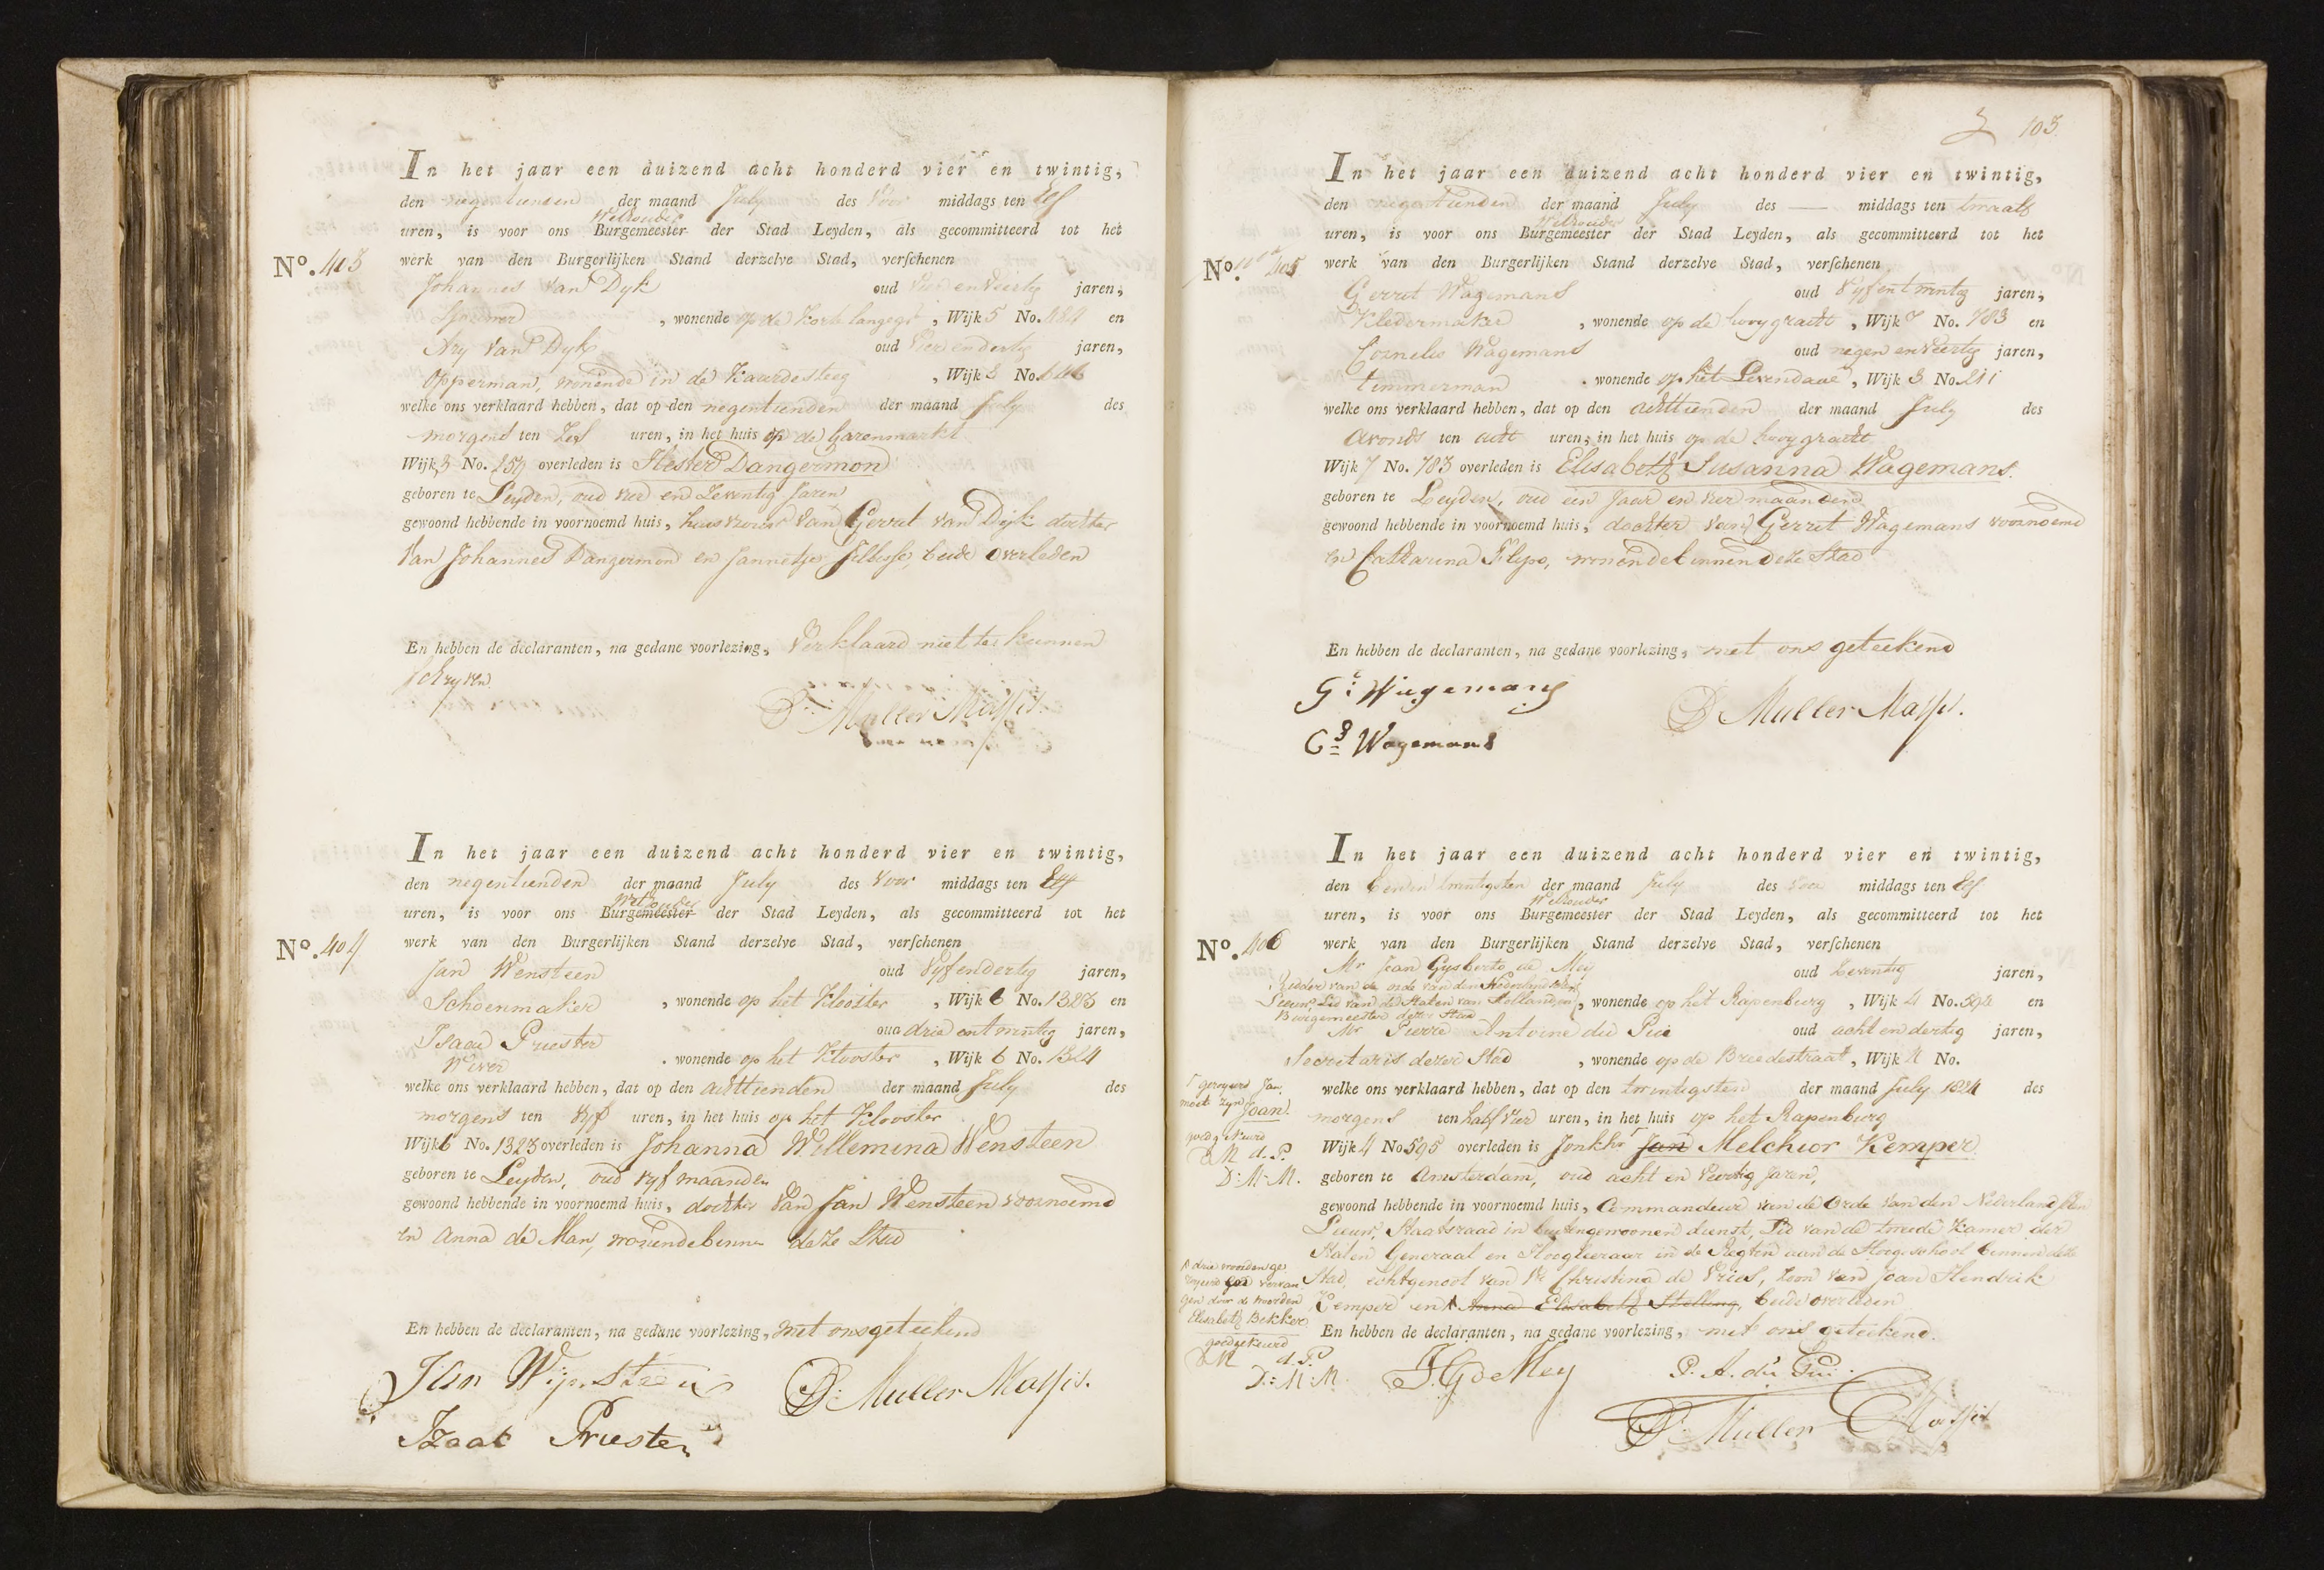 In het jaar een duizend acht honderd vier en twintig,
den negentienden der maand July des Voor middags ten Elf
Wethouder
uren, is voor ons Burgemeester der Stad Leyden, als gecommitteerd tot het
No. 403 werk van den Burgerlijken Stand derzelve Stad, verschenen
Johannes van Dyk oud Vier en Veertig jaren,
Spinner, wonende op de Korte langegr, Wijk 5 No. 484 en
Ary van Dyk oud Vier en dertig jaren,
Opperman, wonende in de Kaardesteeg, Wijk 3 No. 646
welke ons verklaard hebben, dat op den negentienden der maand July des
morgens ten Zes uren, in het huis op de Garenmarkt
Wijk 3 No. 257 overleden is Hester Dangermon
geboren te Leyden, oud vier en Zeventig Jaren
gewoond hebbende in voornoemd huis, huisvrouw van Gerrit van Dijk dochter
Van Johannes Dangermon en Jannetje, beide overleden
En hebben de declaranten, na gedane voorlezing, Verklaard niet te kunnen
schryven.
D: Muller Massis.
In het jaar een duizend acht honderd vier en twintig,
den negentienden der maand July des Voor middags ten Elf
Wethouder
uren, is voor ons Burgemeester der Stad Leyden, als gecommitteerd tot het
No. 404 werk van den Burgerlijken Stand derzelve Stad, verschenen
Jan Wensteen oud Vyfendertig jaren,
Schoenmaker, wonende op het Klooster, Wijk 6 No. 1323 en
Isaac Priester oud drie en twintig jaren,
Wever. wonende op het Klooster, Wijk 6 No. 1324
welke ons verklaard hebben, dat op den achttienden der maand July des
morgens ten Vyf uren, in het huis op het Klooster
Wijk 6 No. 1323 overleden is Johanna Willemina Wensteen
geboren te Leyden, oud vyf maanden
gewoond hebbende in voornoemd huis, dochter van Jan Wensteen voornoemd
en Anna de Man, wonende binnen deze Stad
En hebben de declaranten, na gedane voorlezing, met ons geteekend
Jan Wijnsteen D: Muller Massis.
Izaak Priester
103.
In het jaar een duizend acht honderd vier en twintig,
den negentienden der maand July des — middags ten twaalf
Wethouder
uren, is voor ons Burgemeester der Stad Leyden, als gecommitteerd tot het
No. 405 werk van den Burgerlijken Stand derzelve Stad, verschenen
Gerrit Wagemans oud Vyfentwintig jaren,
Kledermaker, wonende op de hooygracht, Wijk 7 No. 783 en
Cornelis Wagemans oud negen en Veertig jaren,
timmerman. wonende op het Levendaal, Wijk 3 No. 211
welke ons verklaard hebben, dat op den achttienden der maand July des
avonds ten acht uren, in het huis op de hooygracht
Wijk 7 No. 783 overleden is Elisabeth Susanna Wagemans.
geboren te Leyden, oud een Jaar en vier maanden
gewoond hebbende in voornoemd huis, dochter van Gerrit Wagemans voornoemd
en Catharina Filipo, wonende binnen deze Stad
En hebben de declaranten, na gedane voorlezing, met ons geteekend
G: Wagemans
D Muller Massis.
Cs Wagemans
In het jaar een duizend acht honderd vier en twintig,
den Eenentwintigsten der maand July des voor middags ten Elf
Wethouder
uren, is voor ons Burgemeester der Stad Leyden, als gecommitteerd tot het
No. 406 werk van den Burgerlijken Stand derzelve Stad, verschenen
Mr Jean Gysberto de Mey oud Zeventig jaren,
Ridder van de orde van den Nederlandschen
Leeuw, Lid van de Staten van Holland, en, wonende op het Rapenburg, Wijk 4 No. 594 en
Burgemeester dezer Stad
Mr Pierre Antoine du Pui oud acht en dertig jaren,
Secretaris dezer Stad, wonende op de Breedestraat, Wijk 4 No.
welke ons verklaard hebben, dat op den twintigsten der maand July 1824 des
morgens ten half Vier uren, in het huis op het Rapenburg
Wijk 4 No 595 overleden is Jonkhr Jan Melchior Kemper
geboren te Amsterdam, oud acht en Veertig Jaren,
gewoond hebbende in voornoemd huis, Commandeur van de Orde van den Nederlandschen
Leeuw, Staatsraad in buitengewoonen dienst, Lid van de tweede Kamer der
Staten Generaal en Hoogleeraar in de Regten aan de Hoogeschool binnen deze
Stad, echtgenoot van Vr Christina de Vries, Zoon van Joan Hendrik
Kemper en Anna Elisabeth Stelling, beide overleden
En hebben de declaranten, na gedane voorlezing, met ons geteekend.
geroyeerd Jan,
moet zyn
Joan.
goedgekeurd
DM d. P.
D: M. M.
drie woorden ge-
royeerd en vervan
gen door de woorden
Elisabeth Bekker
goedgekeurd
DM d. P
D: M: M.
J G de Mey P. A. du Pui
D: Muller Massis